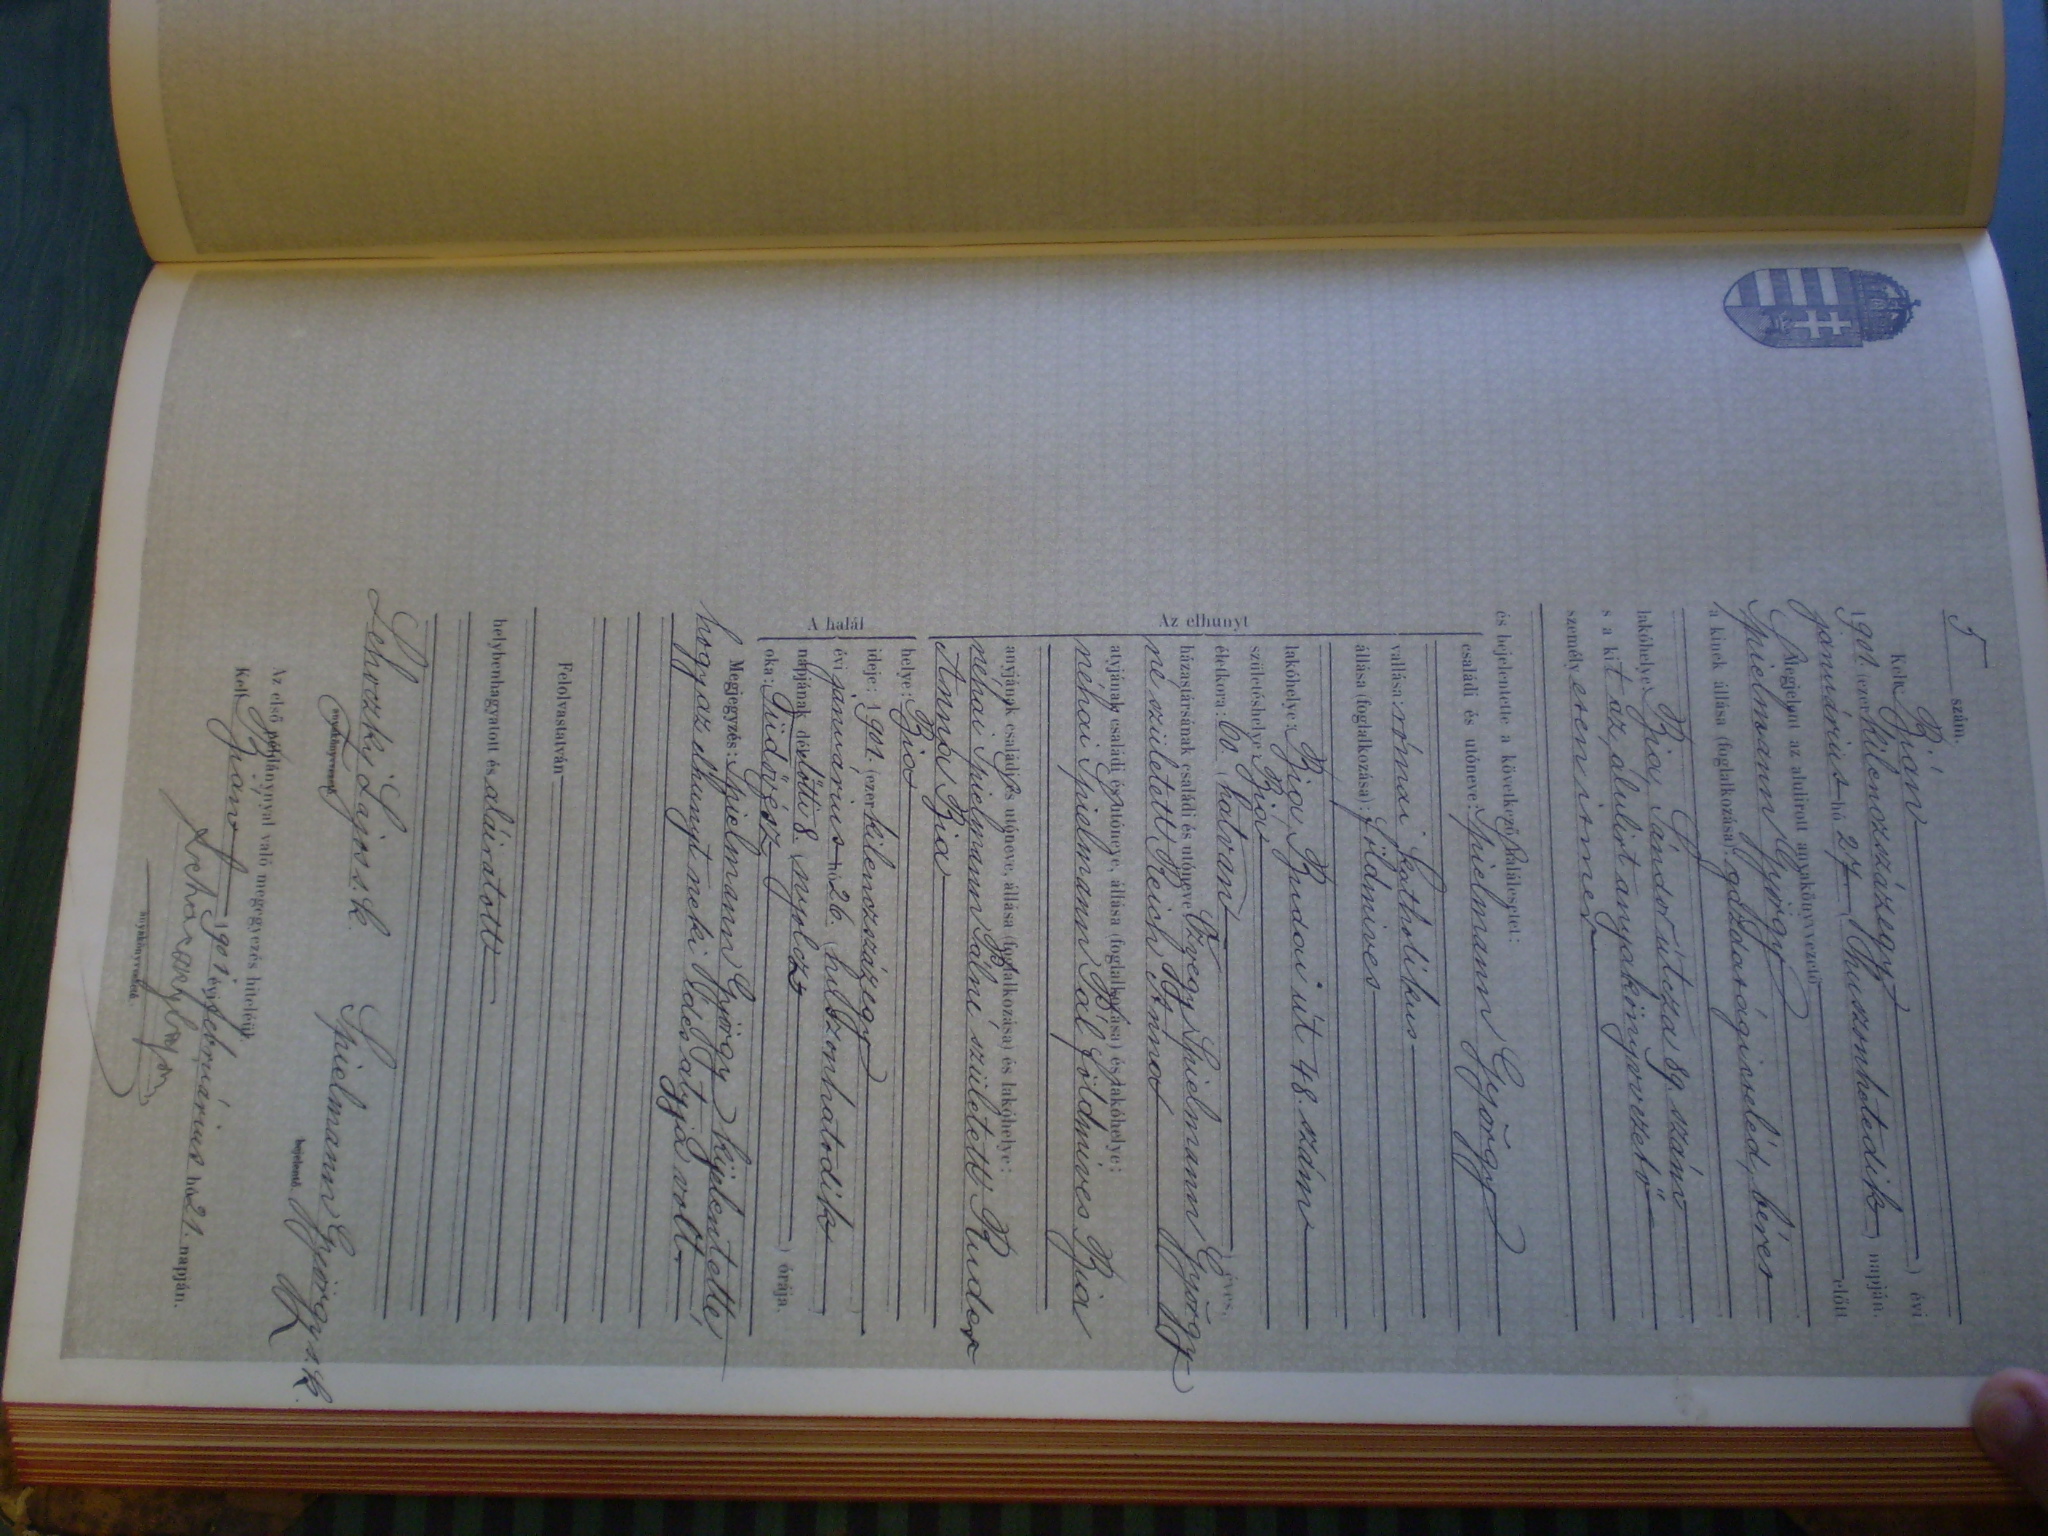 5 szám.
Kelt Bián ) évi
1901. (ezer kilenczszázegy
januárius hó 27 (huszonhetedik ) napján.
Megjelent az alulirott anyakönyvvezető előtt
Spielmann György
a kinek állása (foglalkozása): gazdasági cseléd, béres
lakóhelye: Bia, Sándor útcza 89. szám
s a kit az alulirt anyakönyvvezető
személyesen ismer
és bejelentette a következő halálesetet:
Az elhunyt
családi és utóneve: Spielmann György
vallása: római katholikus
állása (foglalkozása): földmives
lakóhelye: Bia, Budai út 48. szám
születéshelye: Bia
életkora: 60. (hatvan ) éves,
házastársának családi és utóneve: Özvegy Spielmann György
né született Reich Anna
atyjának családi és utóneve, állása (foglalkozása) és lakóhelye:
néhai Spielmann Pál földmíves Bia
anyjának családi és utóneve, állása (foglalkozása) és lakóhelye:
néhai Spielmann Pálné született Ruder
Anna Bia
A halál
helye: Bia
ideje: 1901. (ezer kilenczszázegy )
évi januárius hó 26. (huszonhatodik )
napjának délelőtti 8. (nyolcz ) órája.
oka: Tüdővész
Megjegyzés: Spielmann György kijelentette,
hogy az elhunyt neki édes atyja volt.
Felolvastatván
helybenhagyatott és aláiratott
Lehoczki Lajos s. k. Spielmann György s. k.
anyakönyvvezető. bejelentő.
Az első példánynyal való megegyezés hiteléül
Kelt Bián 1901 évi februárius hó 21. napján.
anyakönyvvezető.